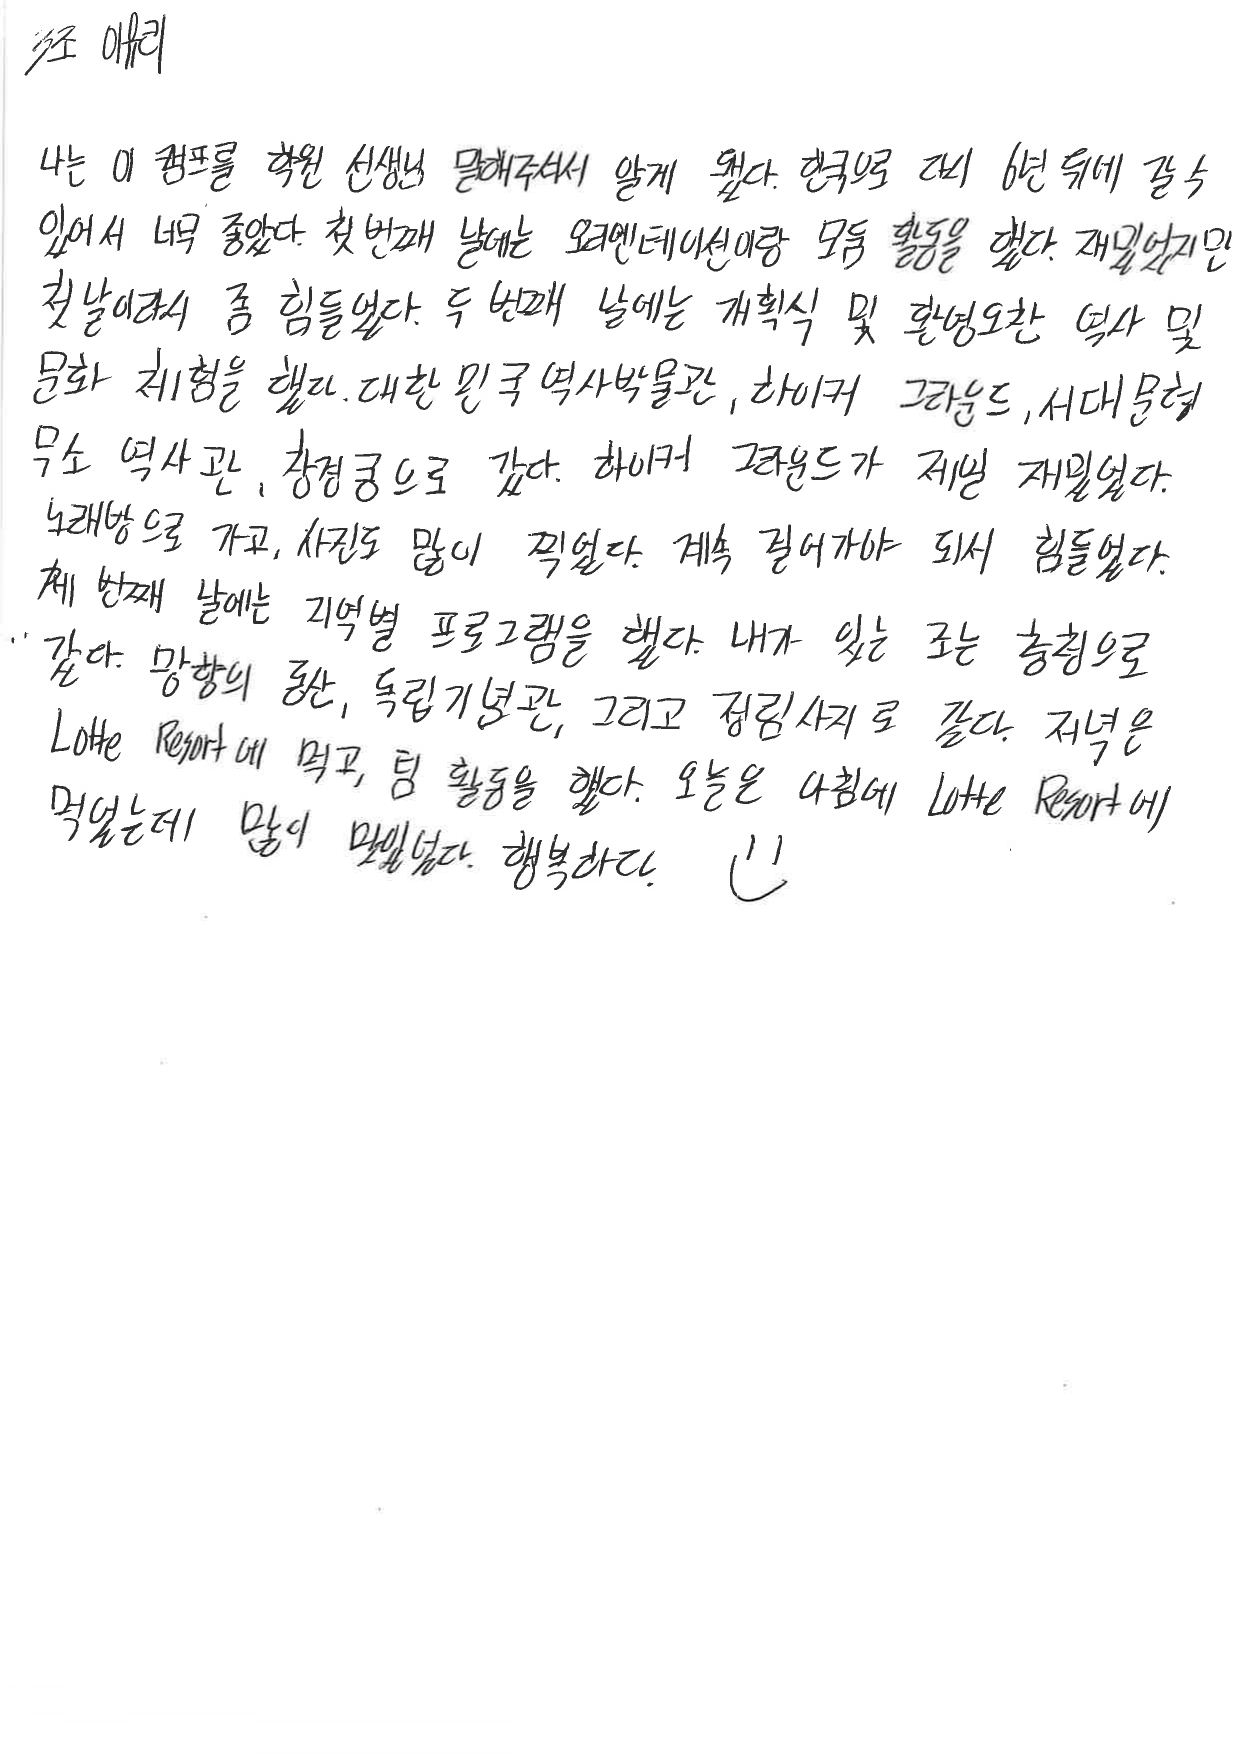 조 이유리
나는 이 캠프를 학원 선생님 말해주셔서 알게 됬다. 한국으로 다시 6년 뒤에 갈 수
있어서 너무 좋았다. 첫 번째 날에는 오리엔테이션이랑 모둠 활동을 했다. 재밌었지만
첫날이라서 좀 힘들었다. 두 번째 날에는 개획식 및 환영오찬 역사 및
문화 체험을 했다. 대한민국역사박물관, 하이커 그라운드, 서대문형
무소 역사관, 창경궁으로 갔다. 하이커 그라운드가 제일 재밌었다.
노래방으로 가고, 사진도 많이 찍었다. 계속 걸어가야 되서 힘들었다.
세 번째 날에는 지역별 프로그램을 했다. 내가 있는 조는 충청으로
갔다. 망향의 동산, 독립기념관, 그리고 정림사지로 갔다. 저녁은
Lotte Resort에 먹고, 팀 활동을 했다. 오늘은 아침에 Lotte Resort에
먹었는데 많이 맛있었다. 행복하다.